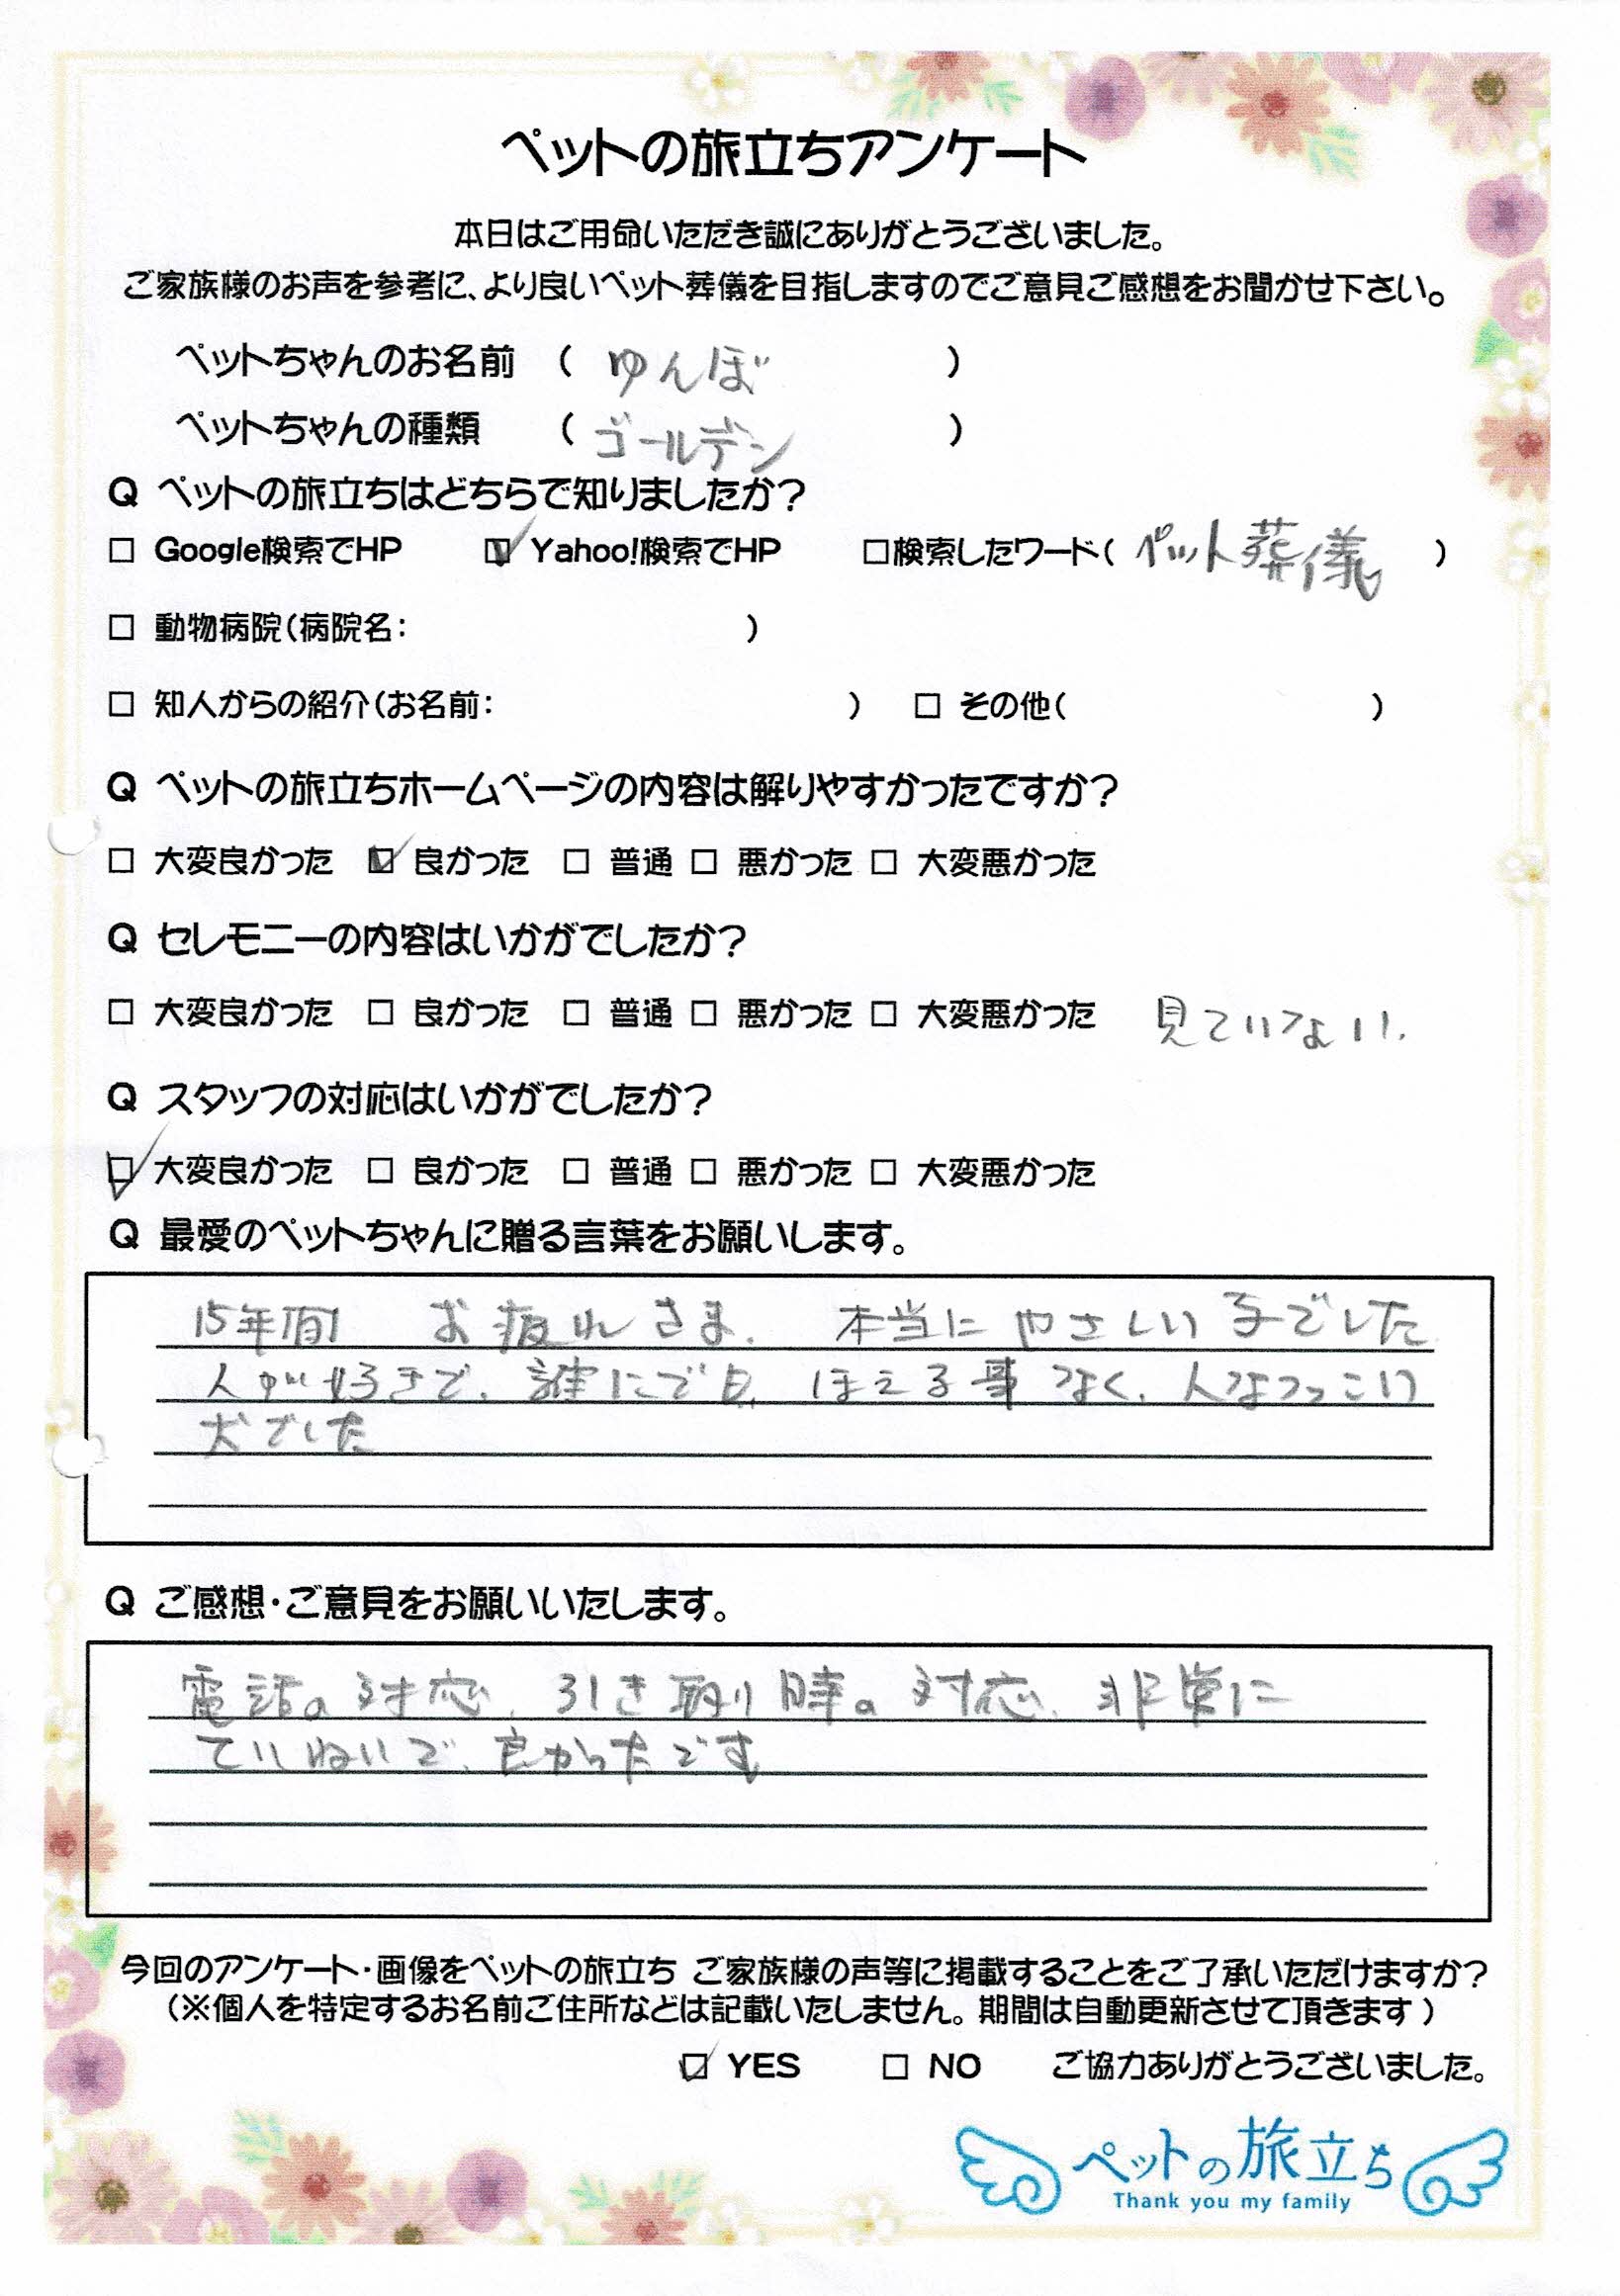 ペットの旅立ちアンケート
本日はご用命いただき誠にありがとうございました。
ご家族様のお声を参考に、より良いペット葬儀を目指しますのでご意見ご感想をお聞かせ下さい。
ペットちゃんのお名前 ( ゆんぼ )
ペットちゃんの種類 ( ゴールデン )
Q ペットの旅立ちはどちらで知りましたか?
□ Google検索でHP ☑ Yahoo!検索でHP □検索したワード( ペット葬儀 )
□ 動物病院(病院名: )
□ 知人からの紹介(お名前: ) □ その他( )
Q ペットの旅立ちホームページの内容は解りやすかったですか?
□ 大変良かった ☑ 良かった □ 普通 □ 悪かった □ 大変悪かった
Q セレモニーの内容はいかがでしたか?
□ 大変良かった □ 良かった □ 普通 □ 悪かった □ 大変悪かった 見ていない.
Q スタッフの対応はいかがでしたか?
☑ 大変良かった □ 良かった □ 普通 □ 悪かった □ 大変悪かった
Q 最愛のペットちゃんに贈る言葉をお願いします。
15年間 お疲れさま. 本当に やさしい 子でした
人が好きで、誰にでも、ほえる事なく、人なつっこい
犬でした
Q ご感想・ご意見をお願いいたします。
電話の対応、引き取り時の対応、非常に
ていねいで、良かったです
今回のアンケート・画像をペットの旅立ち ご家族様の声等に掲載することをご了承いただけますか?
(※個人を特定するお名前ご住所などは記載いたしません。期間は自動更新させて頂きます)
☑ YES □ NO ご協力ありがとうございました。
ペットの旅立ち
Thank you my family